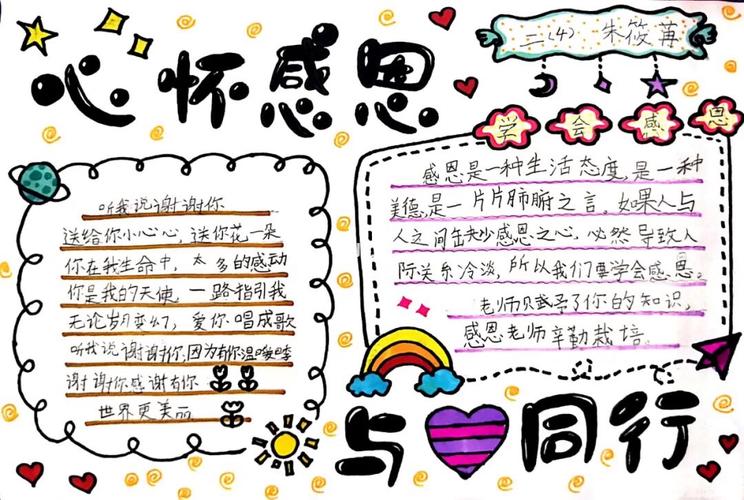 心怀感恩
二(4) 朱筱苒
听我说谢谢你
送给你小心心,送你花一朵
你在我生命中,太多的感动
你是我的天使 一路指引我
无论岁月变幻,爱你唱成歌
听我说谢谢你,因为有你温暖
谢谢你感谢有你
世界更美丽
学会感恩
感恩是一种生活态度,是一种
美德,是一片片肺腑之言。如果人与
人之间缺少感恩之心,必然导致人
际关系冷淡,所以我们要学会感恩。
老师赋予了你的知识,
感恩老师辛勤栽培。
与同行